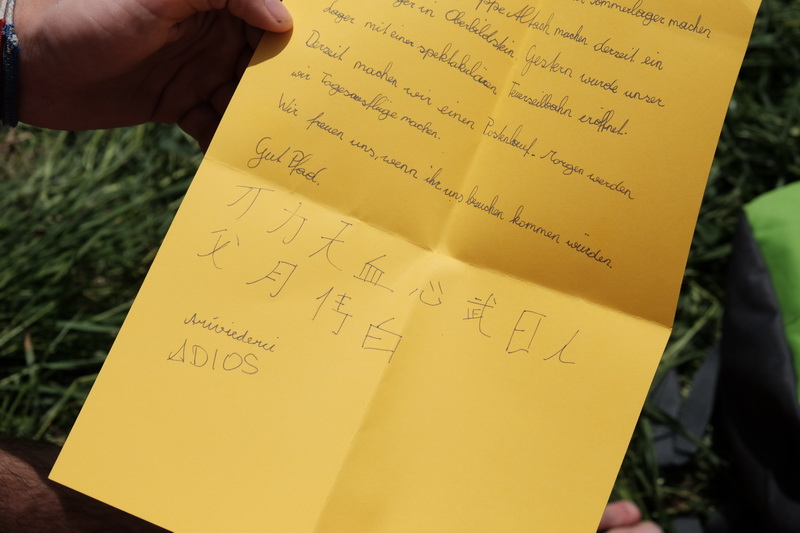 Sommerlager machen
machen derzeit ein
in Oberbildstein Gestern wurde unser
mit einer spektakulären Feuerseilbahn eröffnet.
Derzeit machen wir einen Postenlauf. Morgen werden
wir Tagesausflüge machen.
Wir freuen uns, wenn ihr uns besuchen kommen würden.
Gut Pfad.
力天血心武日人
月白
ADIOS